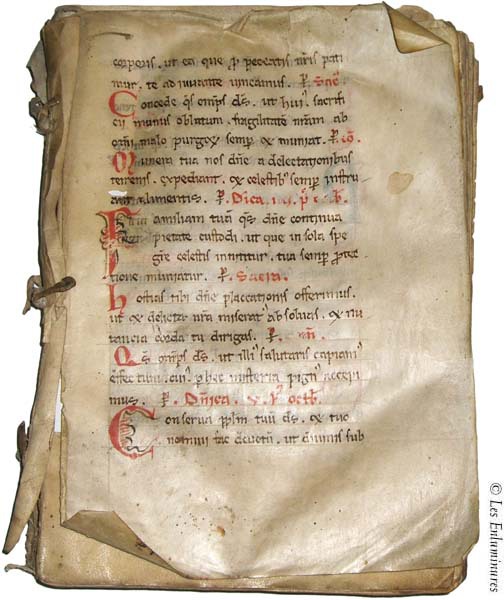 corporis . ut ea que pro peccatis nr̄is pati
mur . te adiuuante uincamus . P.
Concede qs om̄ps ds̄ . ut hui' sacrifi
cii munus oblatum . fragilitatē nr̄am ab
om̄i malo purget semp̄ & muniat . P. cō.
Munera tua nos dn̄e a delectationibus
terrenis . expediant . & celestib' semp̄ instru
ant alimentis . P. Dn̄ica iiii
Familiam tuā qs dn̄e continua
pietate custodi . ut que in sola spe
grē celestis innititur . tua semp̄ protec
tione muniatur . P. Sacra .
Hostias tibi dn̄e placationis offerimus .
ut & delicta nr̄a miserat' absoluas . & nu
tancia corda tu dirigas . P.
Qs om̄ps ds̄ . ut illi' salutaris capiam'
effectum . cui' p hec misteria pign' accepi
mus . P. Dn̄ica . v. P' octb̄ .
Conserua pplm̄ tuū ds̄ . & tuo
nomini fac deuotū . ut diuinis sub
© Les Enluminures